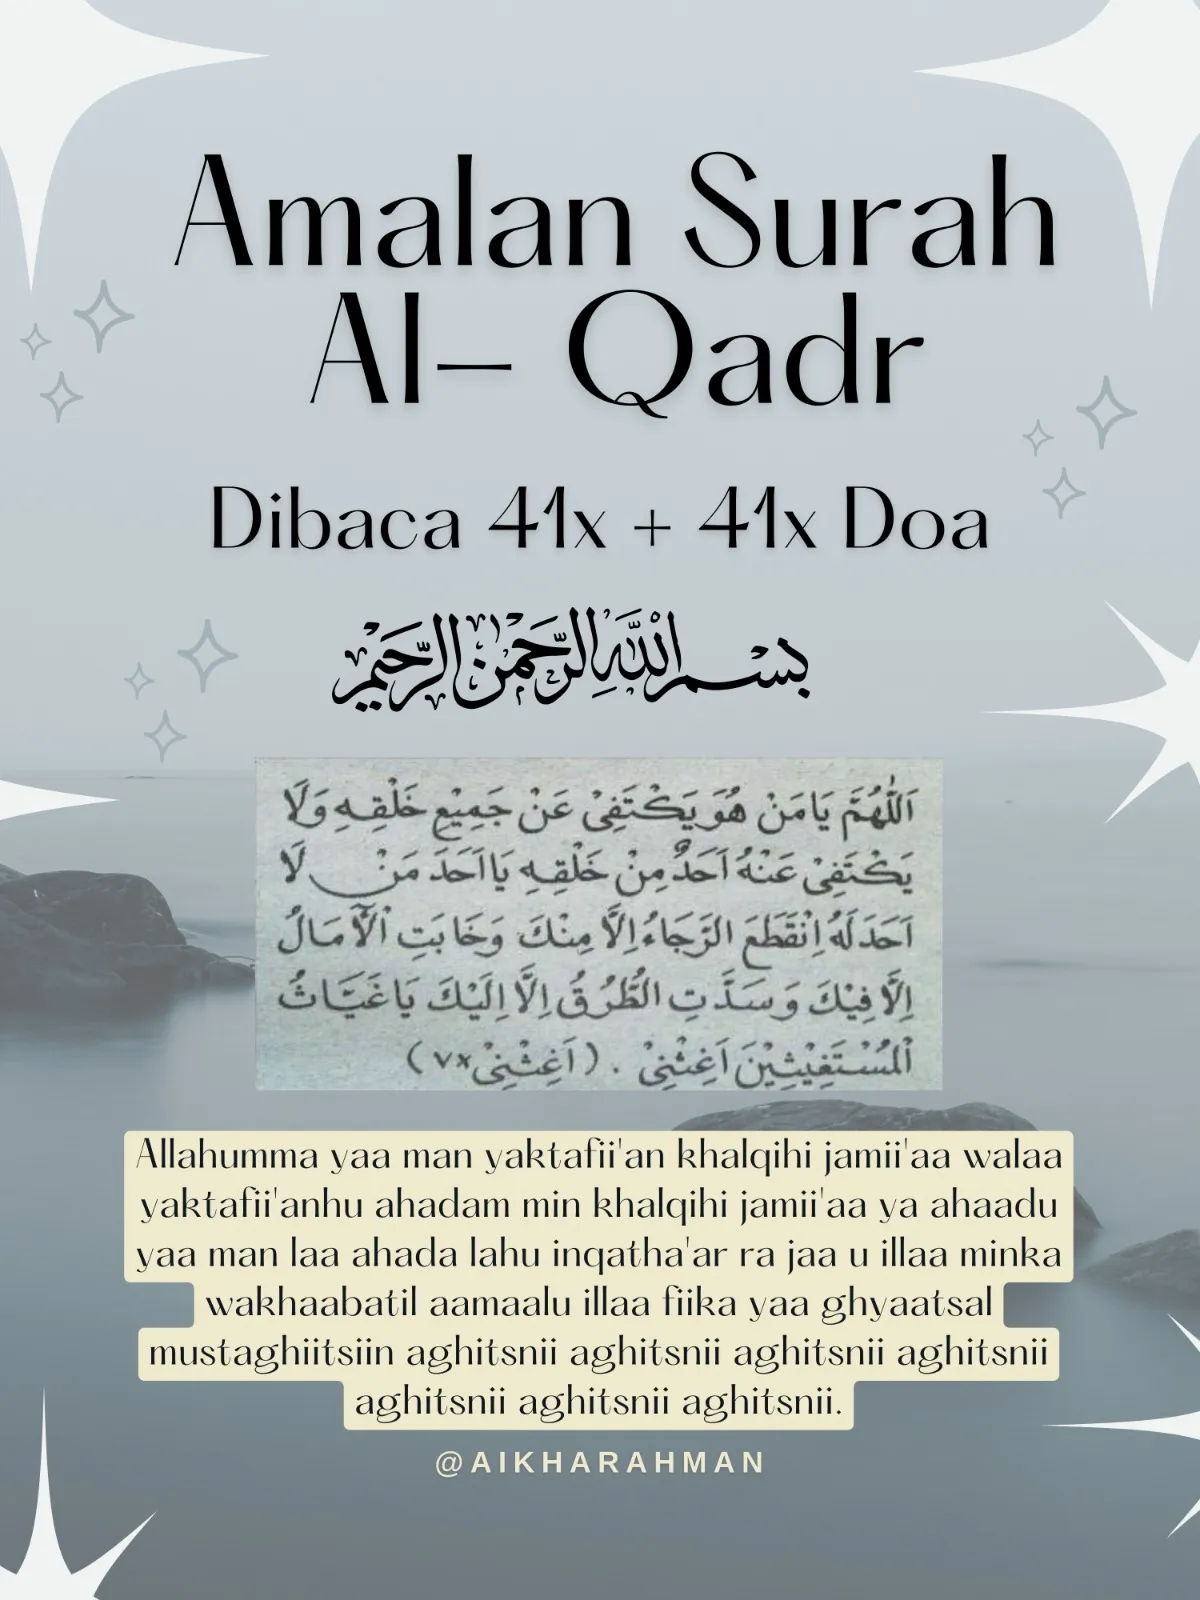 Amalan Surah
Al- Qadr
Dibaca 41x + 41x Doa
بسم الله الرحمن الرحيم
اَللّٰهُمَّ يَامَنْ هُوَ يَكْتَفِيْ عَنْ جَمِيْعِ خَلْقِهِ وَلَا
يَكْتَفِيْ عَنْهُ اَحَدٌ مِنْ خَلْقِهِ يَا اَحَدَ مَنْ لَا
اَحَدَ لَهُ اِنْقَطَعَ الرَّجَاءُ اِلَّا مِنْكَ وَخَابَتِ اْلاٰمَالُ
اِلَّا فِيْكَ وَسَدَّتِ الطُّرُقُ اِلَّا اِلَيْكَ يَا غَيَّاثُ
اْلمُسْتَغِيْثِيْنَ اَغِثْنِيْ . (اَغِثْنِيْ ٧x)
Allahumma yaa man yaktafii'an khalqihi jamii'aa walaa
yaktafii'anhu ahadam min khalqihi jamii'aa ya ahaadu
yaa man laa ahada lahu inqatha'ar ra jaa u illaa minka
wakhaabatil aamaalu illaa fiika yaa ghyaatsal
mustaghiitsiin aghitsnii aghitsnii aghitsnii aghitsnii
aghitsnii aghitsnii aghitsnii.
@AIKHARAHMAN